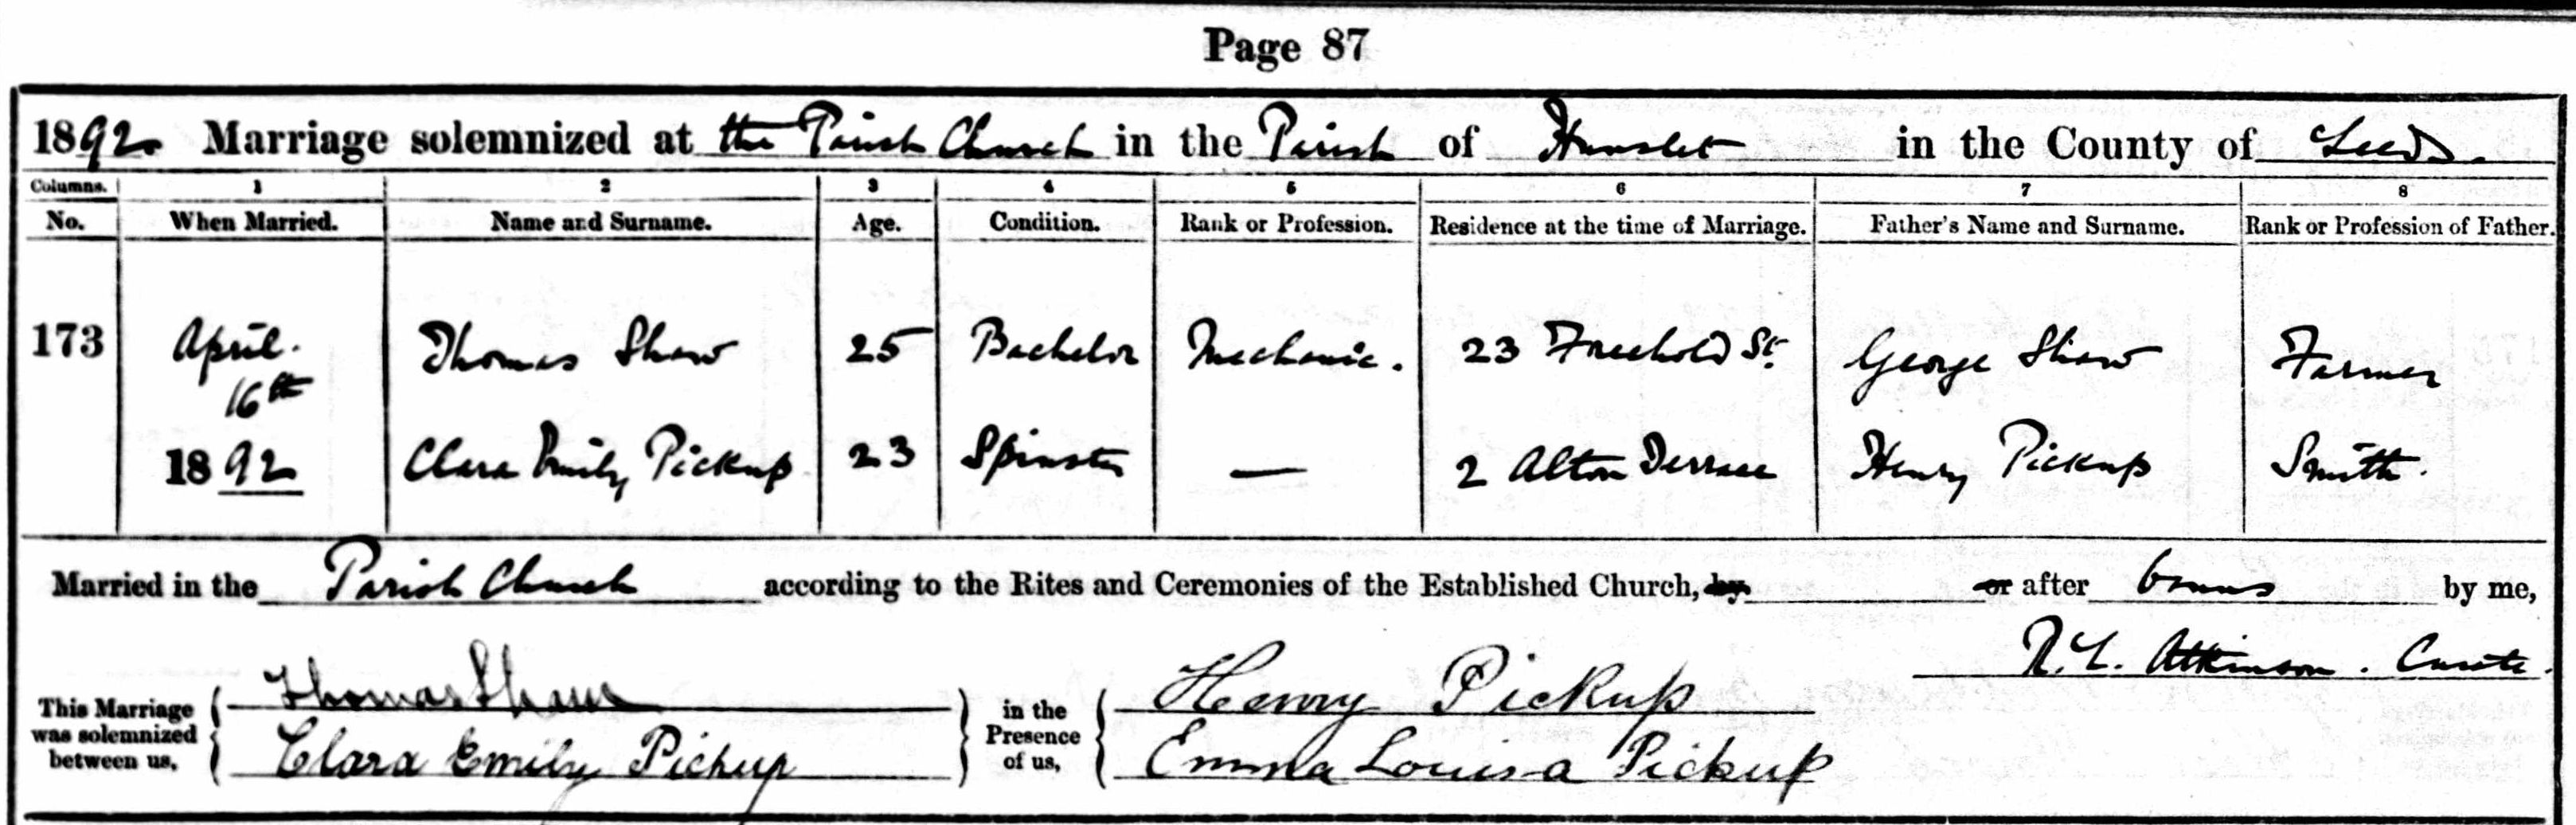 Page 87
1892. Marriage solemnized at the Parish Church in the Parish of Hunslet in the County of Leeds.
Columns. 1 2 3 4 5 6 7 8
No. When Married. Name and Surname. Age. Condition. Rank or Profession. Residence at the time of Marriage. Father's Name and Surname. Rank or Profession of Father.
173 April. Thomas Shaw 25 Bachelor Mechanic. 23 Freehold St. George Shaw Farmer
16th
1892 Clara Emily Pickup 23 Spinster — 2 Alton Terrace Henry Pickup Smith.
Married in the Parish Church according to the Rites and Ceremonies of the Established Church, by or after banns by me,
Atkinson. Curate.
This Marriage was solemnized between us, Thomas Shaw in the Presence of us, Henry Pickup
Clara Emily Pickup Emma Louisa Pickup